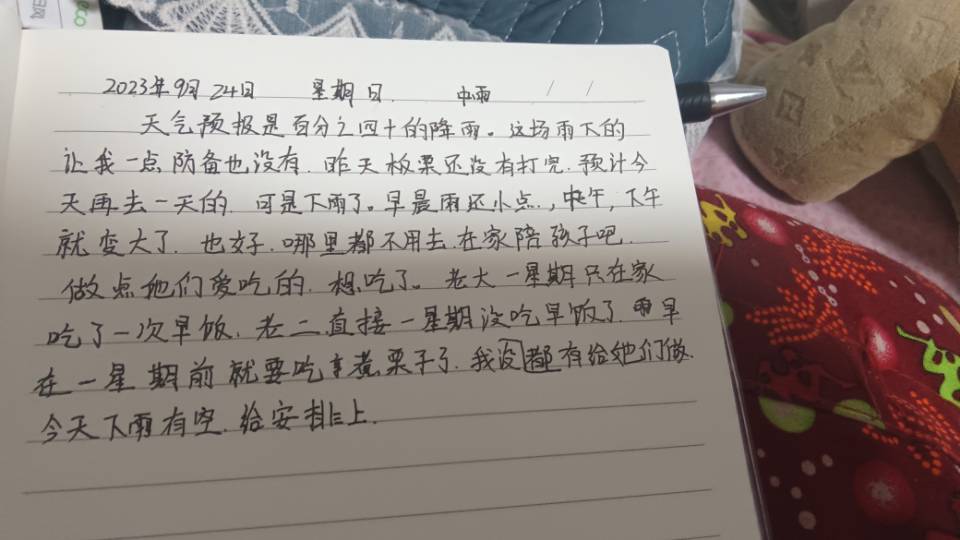 2023年9月24日 星期日. 中雨 / /
天气预报是百分之四十的降雨。这场雨下的
让我一点防备也没有. 昨天板栗还没有打完. 预计今
天再去一天的. 可是下雨了。早晨雨还小点., 中午, 下午
就变大了. 也好. 哪里都不用去. 在家陪孩子吧.
做点他们爱吃的. 想吃了。老大一星期只在家
吃了一次早饭. 老二直接一星期没吃早饭了. 早
在一星期前就要吃煮栗子了. 我没都有给她们做.
今天下雨有空. 给安排上.
eco